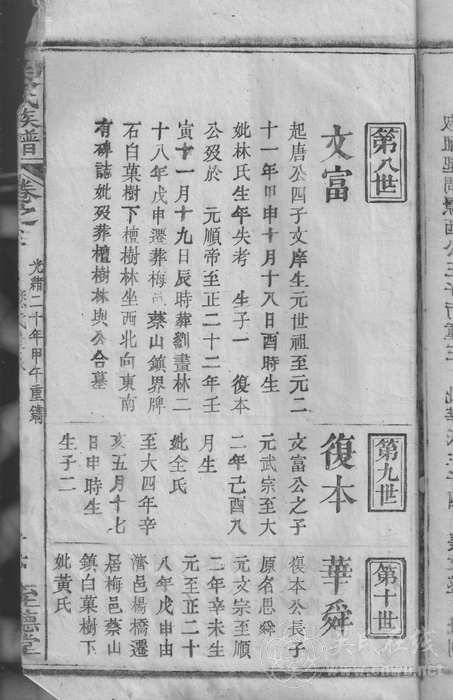 第八世
文富
起唐公四子文庠生元世祖至元二
十一年甲申十月十八日酉時生
妣林氏生年失考 生子一 復本
公歿於 元順帝至正二十二年壬
寅十一月十九日辰時葬劉畫林二
十八年戊申遷葬梅邑蔡山鎮界牌
石白菓樹下檀樹林坐西北向東南
有碑誌妣歿葬檀樹林與公合墓
第九世
復本
文富公之子
元武宗至大
二年己酉八
月生
妣全氏
至大四年辛
亥五月十七
日申時生
生子二
第十世
華舜
復本公長子
原名思舜
元文宗至順
二年辛未生
元至正二十
八年戊申由
濟邑楊橋遷
居梅邑蔡山
鎮白菓樹下
妣黃氏
氏族譜
卷之
光緒二十年甲午重鐫
至德堂
吴氏在线